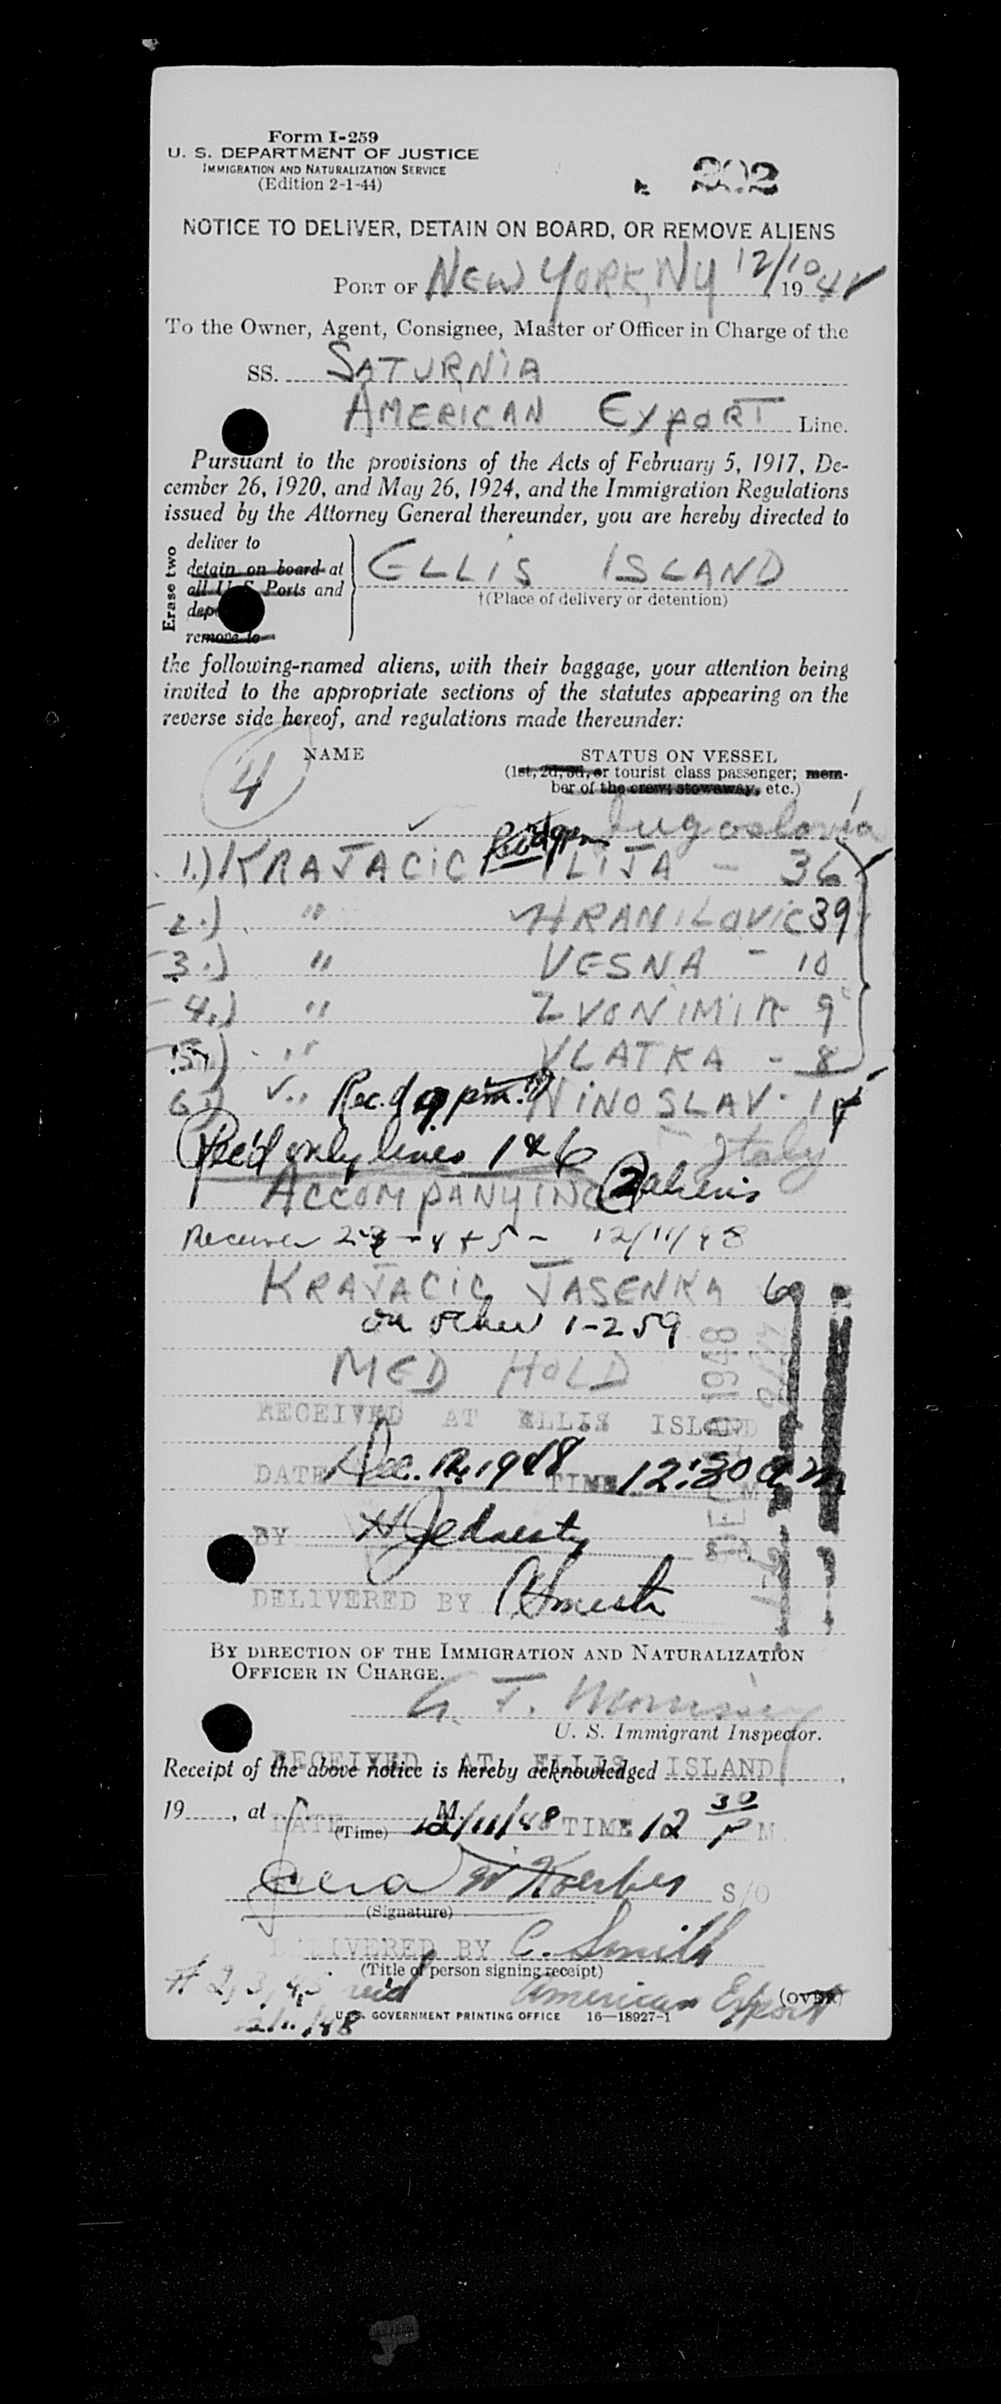 Form I-259
U. S. DEPARTMENT OF JUSTICE
IMMIGRATION AND NATURALIZATION SERVICE
(Edition 2-1-44)
202
NOTICE TO DELIVER, DETAIN ON BOARD, OR REMOVE ALIENS
PORT OF NEW YORK, NY 12/10 1948
To the Owner, Agent, Consignee, Master or Officer in Charge of the
SS. SATURNIA
AMERICAN EXPORT Line.
Pursuant to the provisions of the Acts of February 5, 1917, De-
cember 26, 1920, and May 26, 1924, and the Immigration Regulations
issued by the Attorney General thereunder, you are hereby directed to
Erase two
deliver to
detain on board at
all U. S. Ports and
remove to
ELLIS ISLAND
†(Place of delivery or detention)
the following-named aliens, with their baggage, your attention being
invited to the appropriate sections of the statutes appearing on the
reverse side hereof, and regulations made thereunder:
4
NAME STATUS ON VESSEL
(1st, 2d, 3d, or tourist class passenger; mem-
ber of the crew; stowaway, etc.)
Jugoslovia
1.) KRAJACIC Rec'd 9pm ILIJA - 36
2.) " HRANILOVIC 39
3.) " VESNA - 10
4.) " ZVONIMIR 9
5.) " VLATKA - 8
6.) " Rec'd 9 pm. NINOSLAV - 1
Italy
Rec'd only lines 1 & 6
ACCOMPANYING 2 aliens
4 + 5 - 12/11/48
KRAJACIC JASENKA 6
on other 1-259
MED HOLD
RECEIVED AT ELLIS ISLAND
DATE Dec. 12, 1948 TIME 12:30 a M
BY
DELIVERED BY
1948
BY DIRECTION OF THE IMMIGRATION AND NATURALIZATION
OFFICER IN CHARGE.
U. S. Immigrant Inspector.
RECEIVED AT ELLIS ISLAND
Receipt of the above notice is hereby acknowledged
19 , at M.
(Time)
DATE 12/11/48 TIME 12 30 P M
S/O
(Signature)
DELIVERED BY C. Smith
(Title of person signing receipt)
# 2, 3, 4, 5 rec'd American Export (OVER)
12/11/48
U. S. GOVERNMENT PRINTING OFFICE 16—18927-1